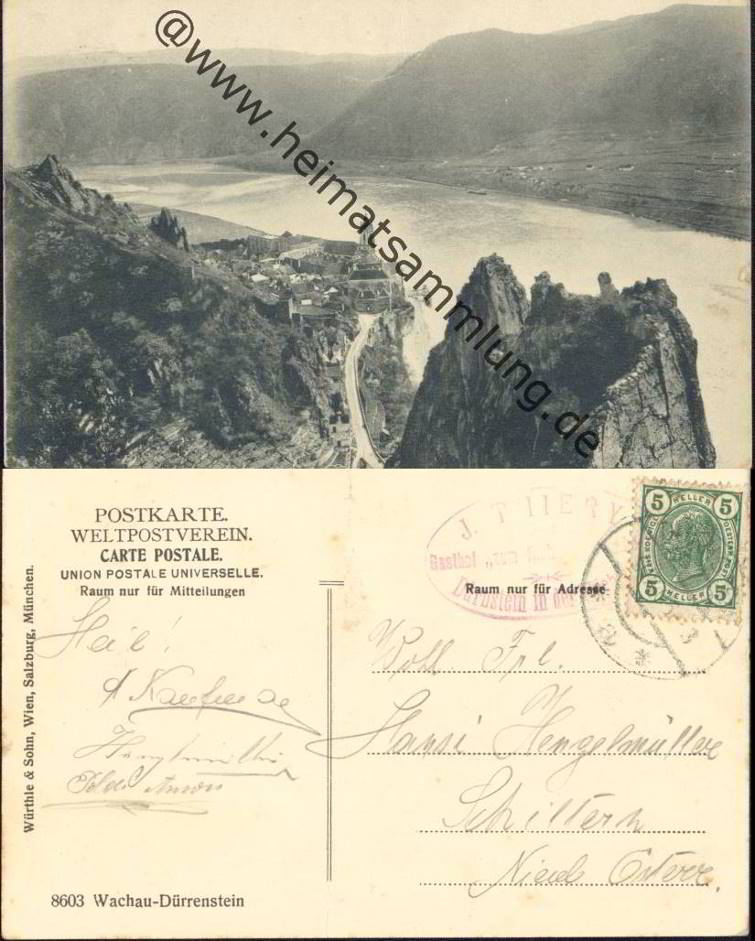 @www.heimatsammlung.de
POSTKARTE.
WELTPOSTVEREIN.
CARTE POSTALE.
UNION POSTALE UNIVERSELLE.
Raum nur für Mitteilungen
J. THIERY
Gasthof „zum
Dürnstein in der
5 HELLER 5
5 HELLER 5
Raum nur für Adresse
Heil!
Wohl. Frl.
Hansi Hengelmüller
Schiltern
Nieder Österr.
Würthle & Sohn, Wien, Salzburg, München.
8603 Wachau-Dürrenstein